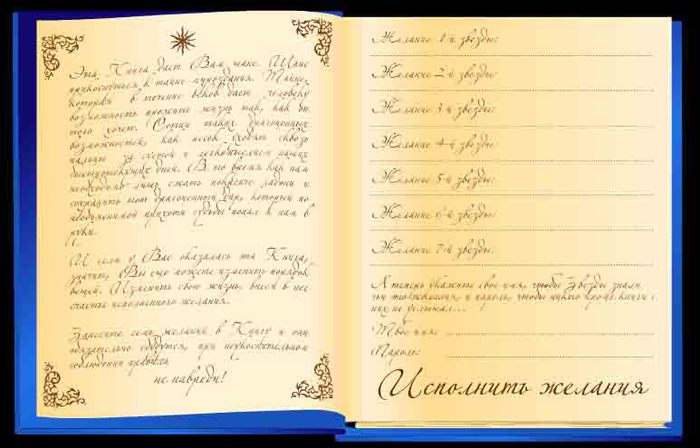 Эта Книга даст Вам шанс. Шанс
прикоснуться к тайне мироздания. Тайне,
которая в течение веков дает человеку
возможность прожить жизнь так, как он
того хочет. Сотни таких драгоценных
возможностей, как песок уходят сквозь
пальцы за суетой и легкомыслием наших
быстротекущих дней. В то время как нам
необходимо лишь сжать покрепче ладони и
сохранить этот драгоценный дар, который по
необъяснимой прихоти судьбы попал к нам в
руки.
И если у Вас оказалась эта Книга,
значит, Вы еще можете изменить порядок
вещей. Изменить свою жизнь, внеся в нее
счастье исполненного желания.
Занесите семь желаний в Книгу и они
обязательно сбудутся, при неукоснительном
соблюдении правила
не навреди!
Желание 1-й звезды:
Желание 2-й звезды:
Желание 3-й звезды:
Желание 4-й звезды:
Желание 5-й звезды:
Желание 6-й звезды:
Желание 7-й звезды:
А теперь укажите свое имя, чтобы Звезды знали
чьи это желания, и пароль, чтобы никто кроме книги о
них не услышал...
Твое имя:
Пароль:
Исполнить желания